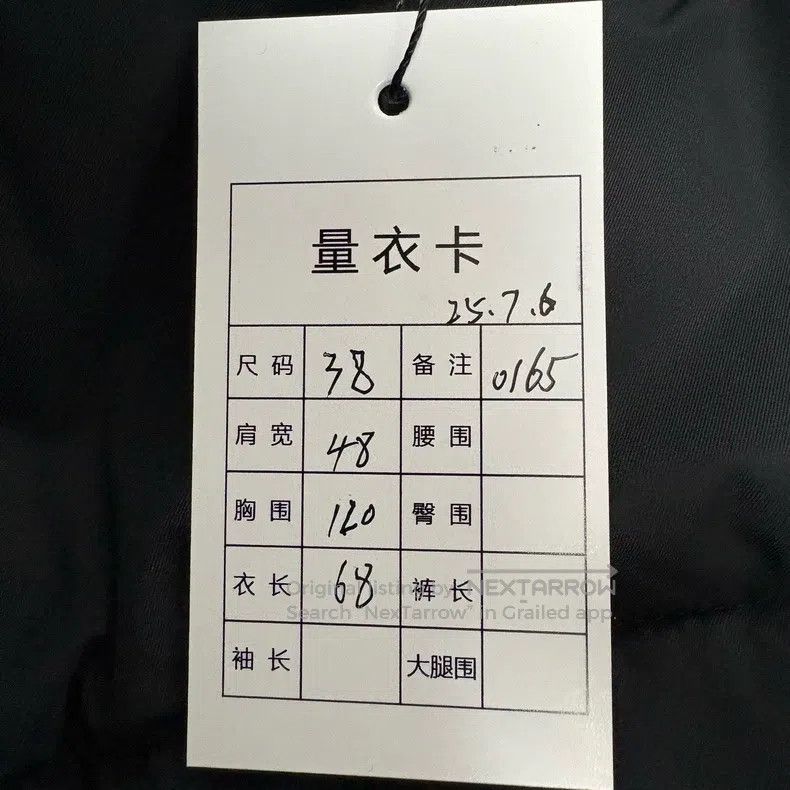 量衣卡
25.7.6
尺码 38 备注 0165
肩宽 48 腰围
胸围 120 臀围
衣长 68 裤长
袖长 大腿围
Original listing by: NEXTARROW
Search "NexTarrow" in Grailed app